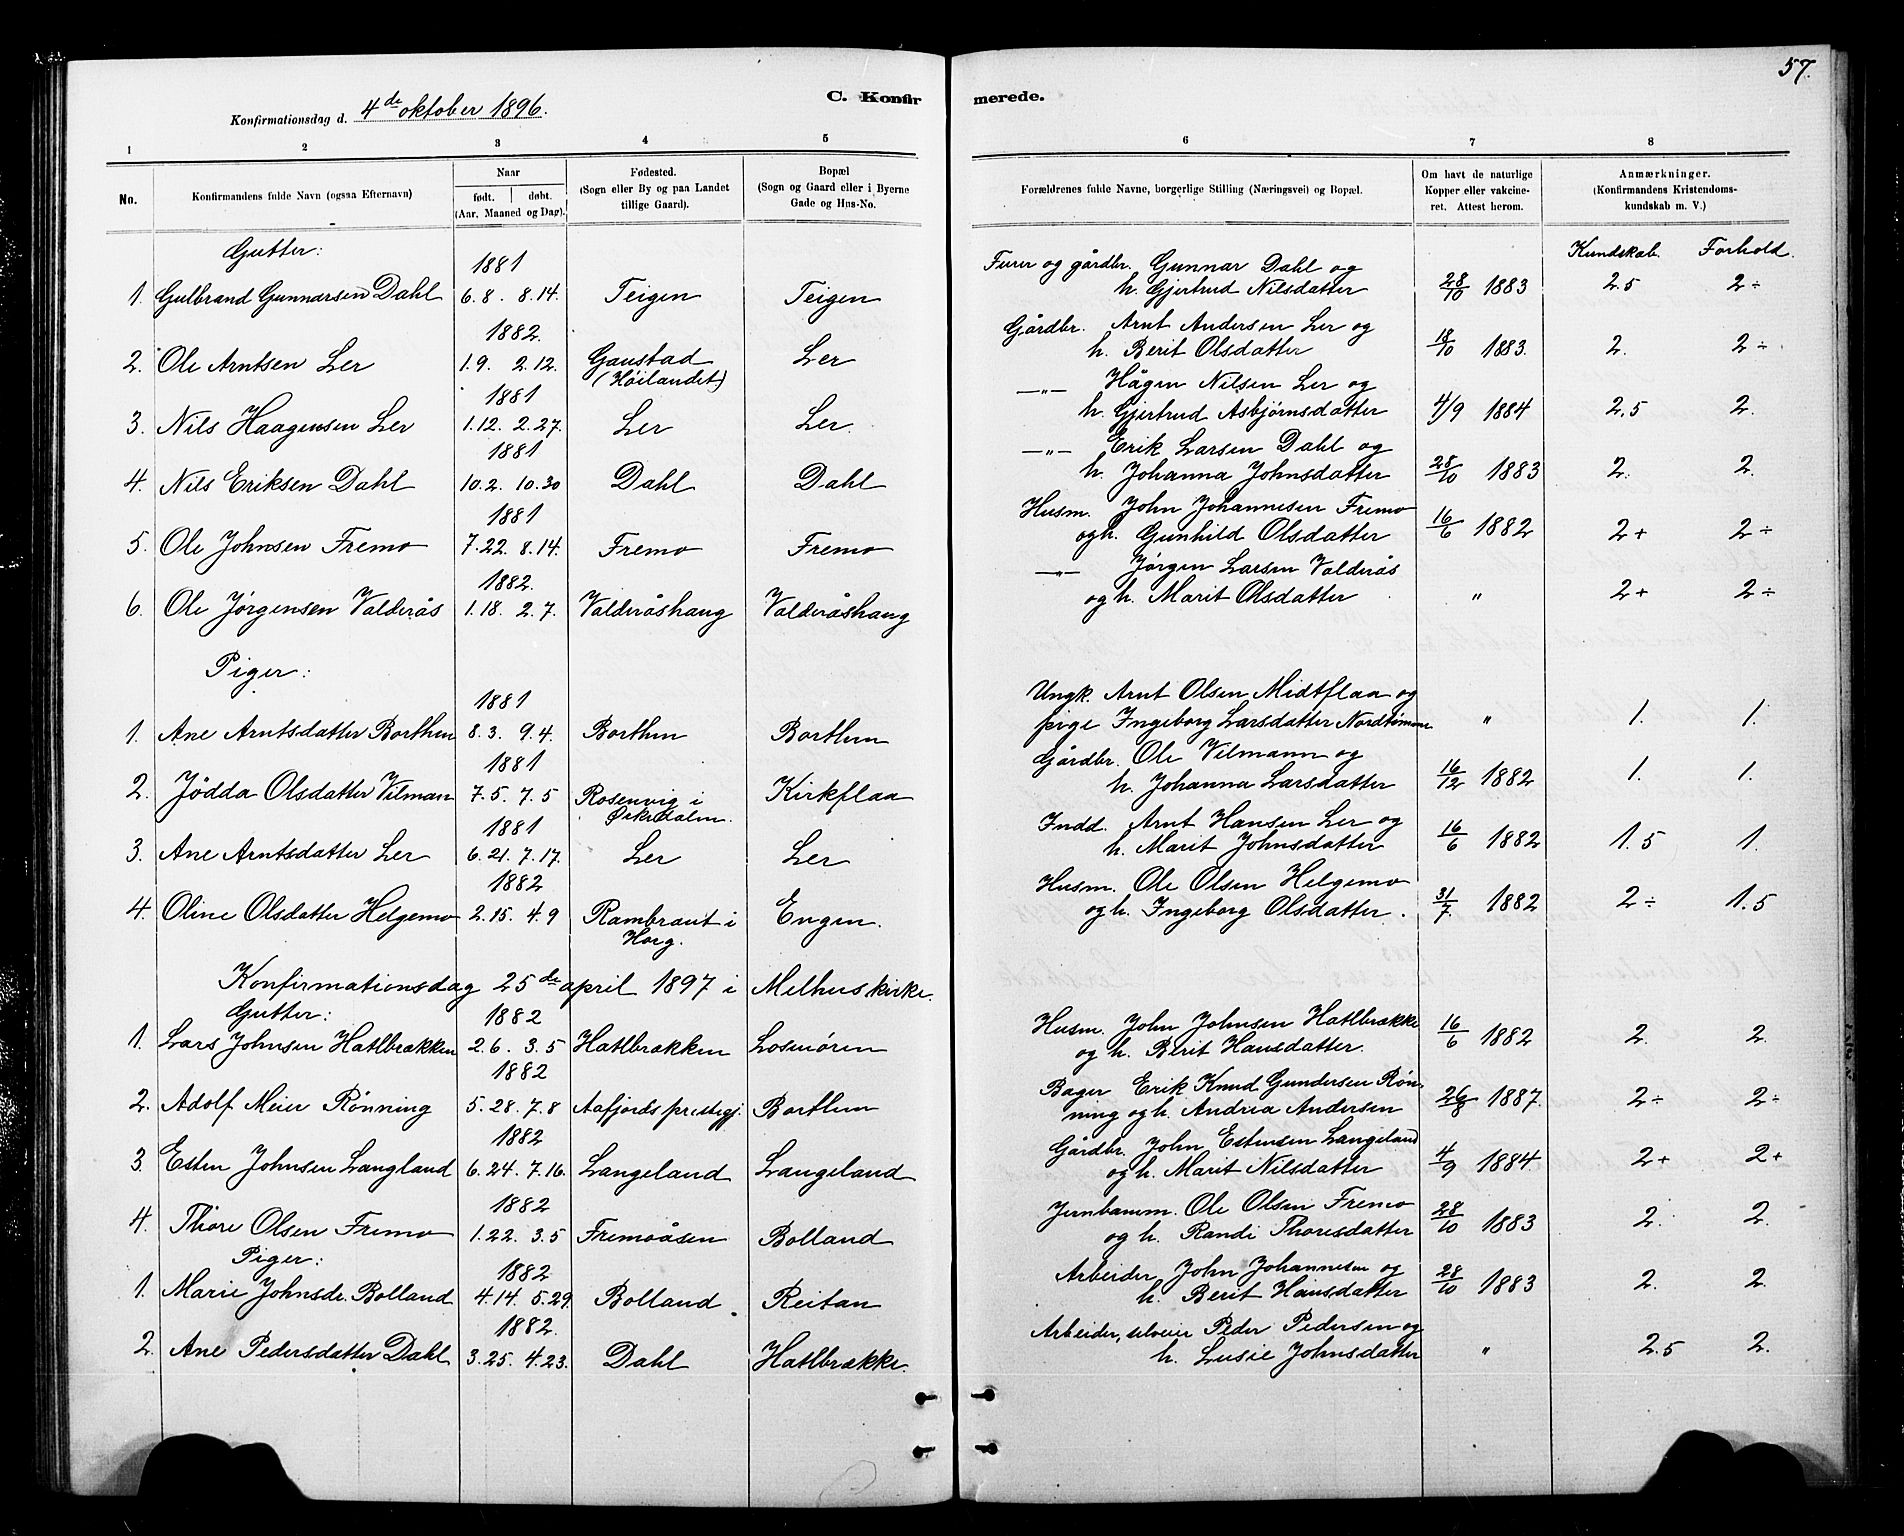 57.
C. Konfirmerede.
Konfirmationsdag d. 4de oktober 1896.
1 2 3 4 5 6 7 8
No. Konfirmandens fulde Navn (ogsaa Efternavn) Naar født. døbt. (Aar, Maaned og Dag). Fødested. (Sogn eller By og paa Landet tillige Gaard). Bopæl (Sogn og Gaard eller i Byerne Gade og Hus-No. Forældrenes fulde Navne, borgerlige Stilling (Næringsvei) og Bopæl. Om havt de naturlige Kopper eller vakcineret. Attest herom. Anmærkninger. (Konfirmandens Kristendomskundskab m. V.)
Gutter: Kundskab. Forhold.
1881 Furer og gårdbr. Gunnar Dahl og
1. Gulbrand Gunnarsen Dahl 6.8. 8.14. Teigen Teigen h. Gjertrud Nilsdatter 28/10 1883 2.5 2÷
1882. Gårdbr. Arnt Andersen Ler og
2. Ole Arntsen Ler 1.9. 2.12. Gaustad (Høilandet) Ler h. Berit Olsdatter 18/10 1883. 2. 2÷
1881 —"— Hågen Nilsen Ler og
3. Nils Haagensen Ler 1.12. 2.27. Ler Ler. h. Gjertrud Asbjørnsdatter 4/9 1884 2.5 2.
1881 —"— Erik Larsen Dahl og
4. Nils Eriksen Dahl 10.2. 10.30 Dahl Dahl h. Johanna Johnsdatter 28/10 1883 2. 2.
1881 Husm. John Johannesen Fremo
5. Ole Johnsen Fremo 7.22. 8.14. Fremo Fremo og h. Gunhild Olsdatter 16/6 1882 2+ 2÷
1882. —"— Jørgen Larsen Valderås
6. Ole Jørgensen Valderås 1.18. 2.7. Valderåshaug Valderåshaug og h. Marit Olsdatter " 2+ 2÷
Piger:
1881 Ungk. Arnt Olsen Midtflaa og
1. Ane Arntsdatter Borthen 8.3. 9.4. Borthen Borthen pige Ingeborg Larsdatter Nordtømme " 1. 1.
1881 Gårdbr. Ole Vilmann og
2. Jødda Olsdatter Vilman 7.5. 7.5 Rosenvig i Øksdalen. Kirkflaa h. Johanna Larsdatter 16/12 1882 1. 1.
1881 Indd. Arnt Hansen Ler og
3. Ane Arntsdatter Ler 6.21. 7.17. Ler Ler h. Marit Johnsdatter 16/6 1882 1.5 1.
1882 Husm. Ole Olsen Helgemo
4. Oline Olsdatter Helgemo 2.15. 4.9 Rambraut i Horg. Engen. og h. Ingeborg Olsdatter. 31/7. 1882 2÷ 1.5
Konfirmationsdag 25de april 1897 i Melhus kirke.
Gutter: 1882 Husm. John Johnsen Hatlbrække
1. Lars Johnsen Hatlbrækken 2.6. 3.5 Hatlbrækken Losmøren og h. Berit Hansdatter. 16/6 1882 2. 2.
1882 Bager Erik Knud Gundersen Røn-
2. Adolf Meier Rønning 5.28. 7.8 Aafjords prestegj. Borthen ning og h. Andrea Andersen 26/8 1887. 2÷ 2÷
1882 Gårdbr. John Estensen Langeland
3. Esten Johnsen Langland 6.24. 7.16. Langeland Langeland og h. Marit Nilsdatter 4/9 1884 2+ 2+
1882 Jernbanm. Ole Olsen Fremo
4. Thore Olsen Fremo 1.22. 3.5 Fremoåsen Bolland og h. Randi Thoresdatter 28/10 1883 2. 2.
Piger:
1882 Arbeider John Johannesen og
1. Marie Johnsdr. Bolland 4.14. 5.29. Bolland. Reitan h. Berit Hansdatter 28/10 1883 2. 2.
1882. Arbeider, selveier Peder Pedersen og
2. Ane Pedersdatter Dahl 3.25. 4.23. Dahl Hatlbrække. h. Lusie Johnsdatter " 2.5 2.